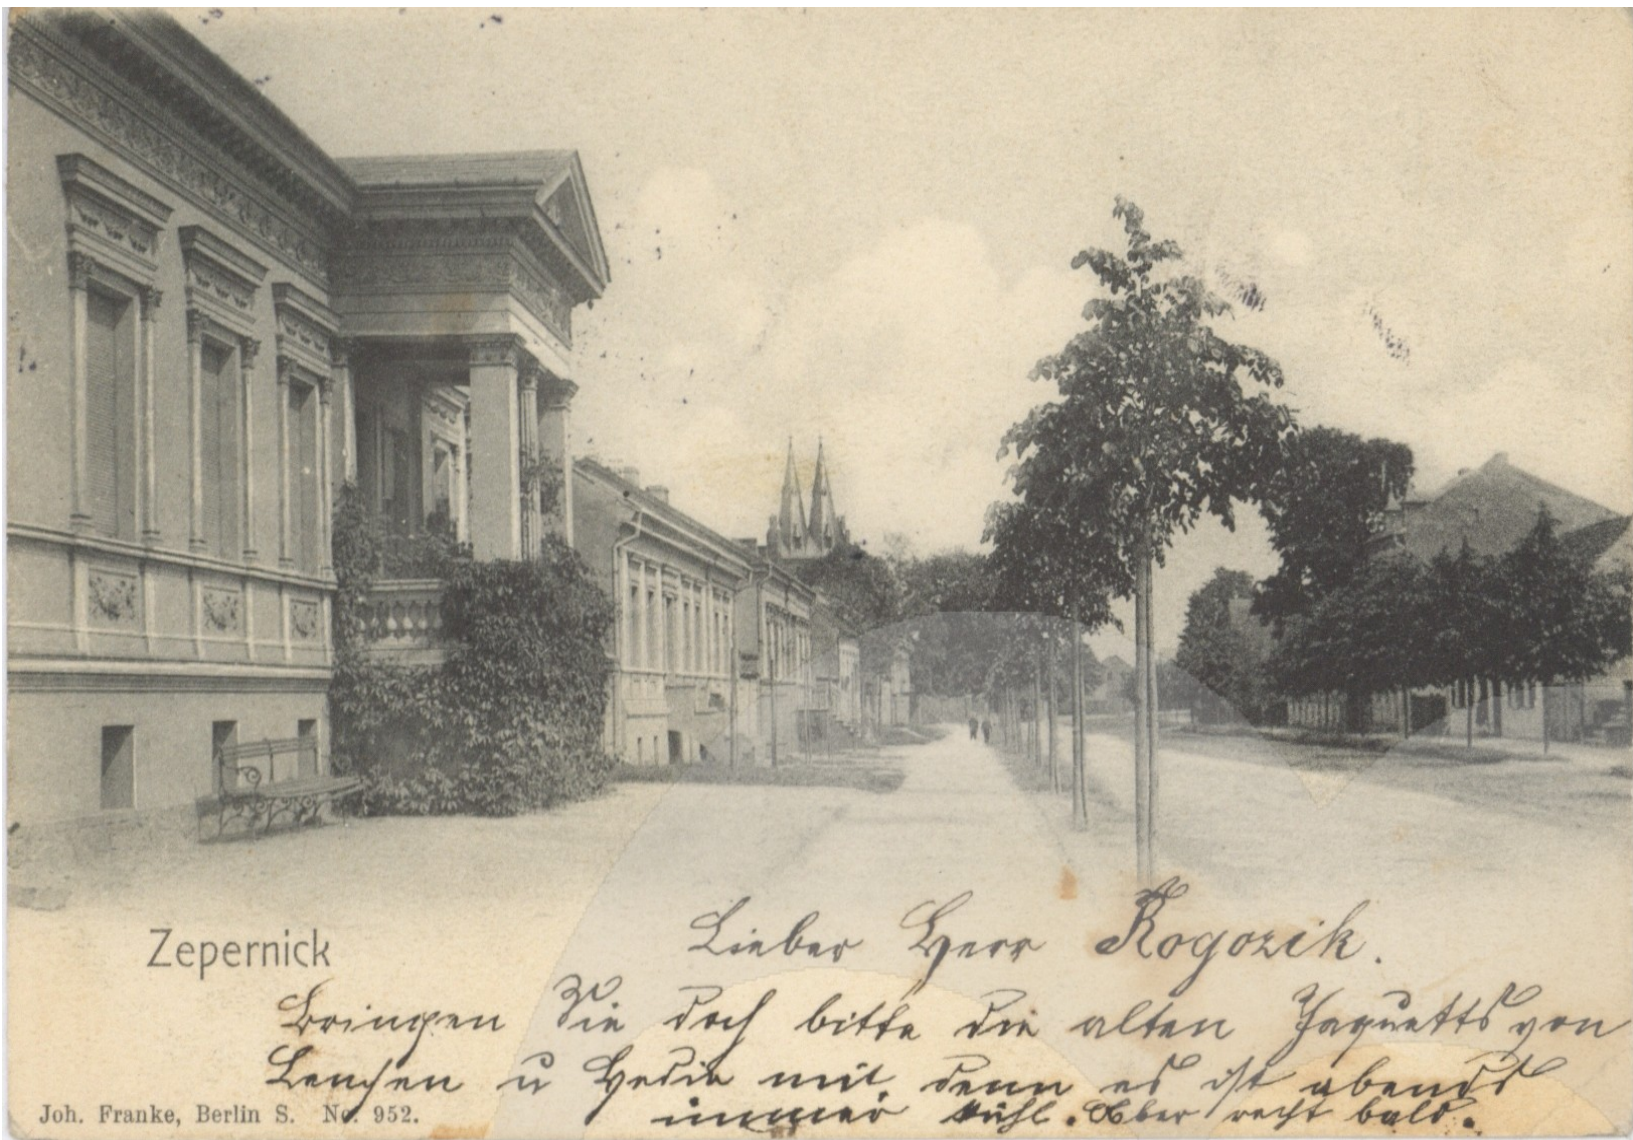 Zepernick
Lieber Herr Rogozik.
Bringen Sie doch bitte die alten Jaquetts von
Lenchen u Hedie mit, denn es ist abends
immer kühl. Aber recht bald.
Joh. Franke, Berlin S. No. 952.